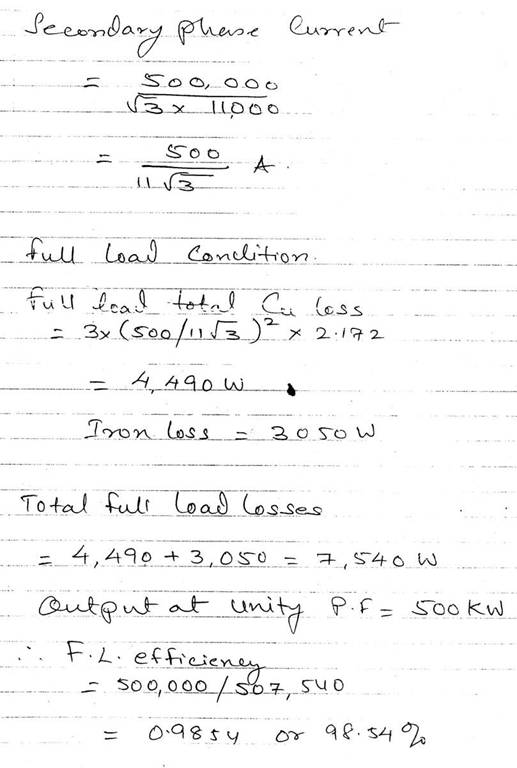 Secondary phase Current
= 500,000 / √3 × 11,000
= 500 / 11√3 A.
full load Condition.
full load total Cu loss
= 3x (500/11√3)² × 2.172
= 4,490 W
Iron loss = 3050 W
Total full load losses
= 4,490 + 3,050 = 7,540 W
Output at unity P.F = 500 KW
∴ F.L. efficiency
= 500,000 / 507,540
= 0.9854 or 98.54 %